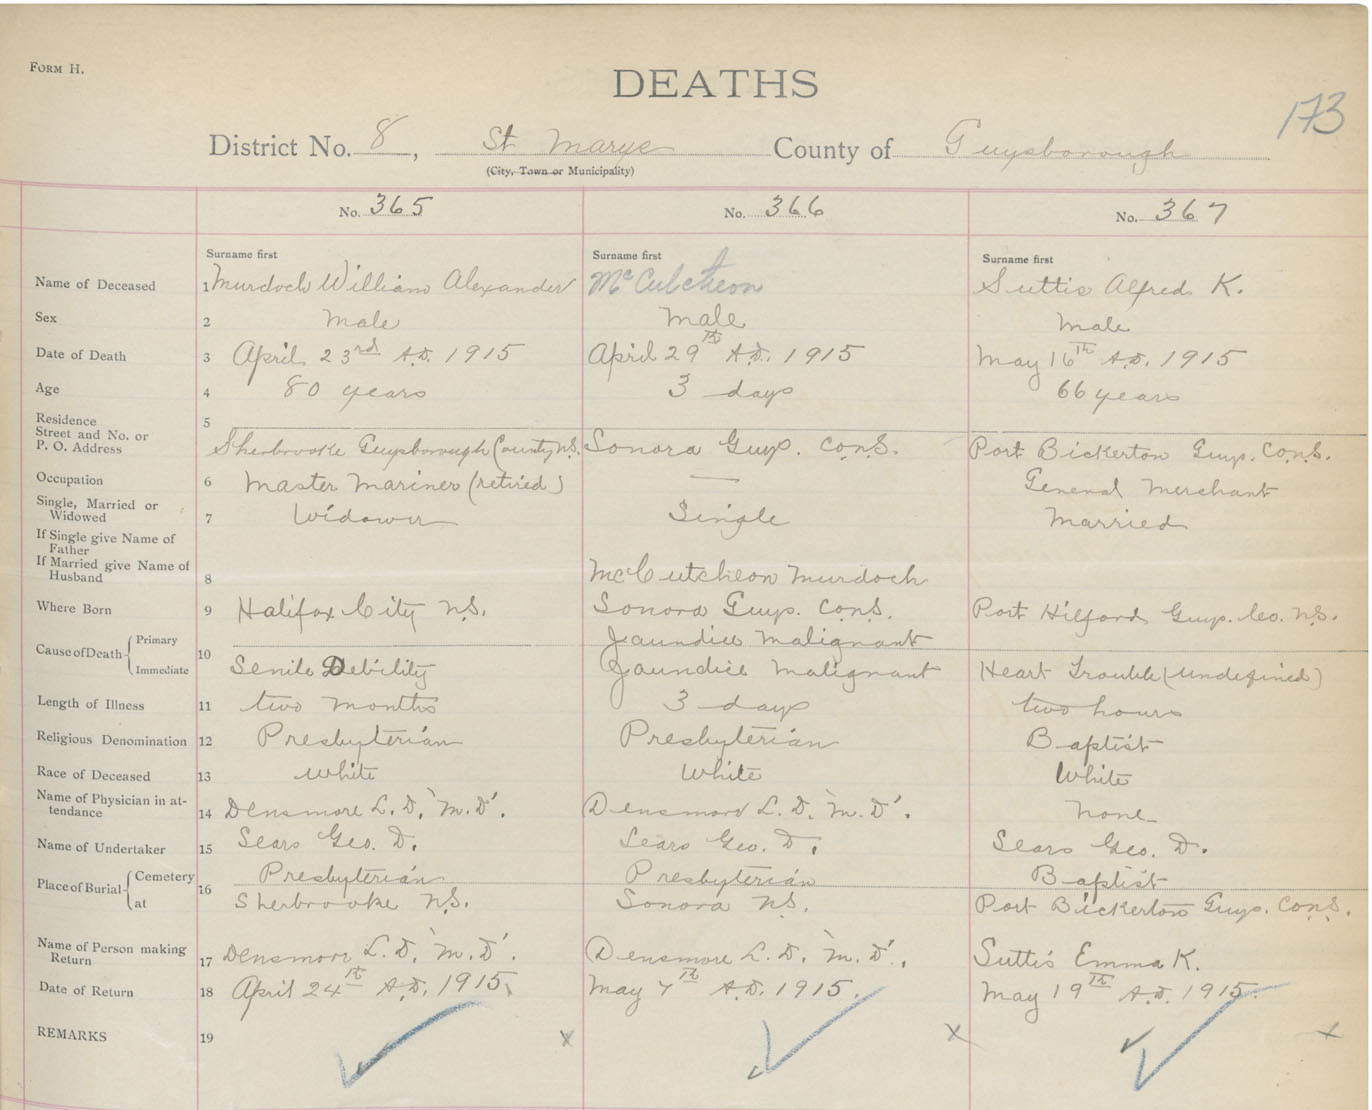 FORM H.
DEATHS
173
District No. 8, St Marys County of Guysborough
(City, Town or Municipality)
No. 365 No. 366 No. 367
Surname first Surname first Surname first
Name of Deceased 1 Murdoch William Alexander McCutcheon Suttis Alfred K.
Sex 2 Male Male Male
Date of Death 3 April 23rd A.D. 1915 April 29th A.D. 1915 May 16th A.D. 1915
Age 4 80 years 3 days 66 years
Residence 5
Street and No. or
P. O. Address Sherbrooke Guysborough County N.S. Sonora Guys. Co N.S. Port Bickerton Guys. Co N.S.
Occupation 6 Master Mariner (retired) — General Merchant
Single, Married or
Widowed 7 Widower Single Married
If Single give Name of
Father
If Married give Name of
Husband 8 McCutcheon Murdoch
Where Born 9 Halifax City N.S. Sonora Guys. Co N.S. Port Hilford Guys. Co. N.S.
Cause of Death Primary 10 Jaundice Malignant
Immediate Senile Debility Jaundice Malignant Heart Trouble (undefined)
Length of Illness 11 two months 3 days two hours
Religious Denomination 12 Presbyterian Presbyterian Baptist
Race of Deceased 13 White White White
Name of Physician in at-
tendance 14 Densmore L. D. "M.D". Densmore L. D. "M.D". None
Name of Undertaker 15 Sears Geo. D. Sears Geo. D. Sears Geo. D.
Place of Burial Cemetery 16 Presbyterian Presbyterian Baptist
at Sherbrooke N.S. Sonora N.S. Port Bickerton Guys. Co N.S.
Name of Person making
Return 17 Densmore L. D. "M.D". Densmore L. D. "M.D". Suttis Emma K.
Date of Return 18 April 24th A.D. 1915 May 7th A.D. 1915. May 19th A.D. 1915.
REMARKS 19 x x x